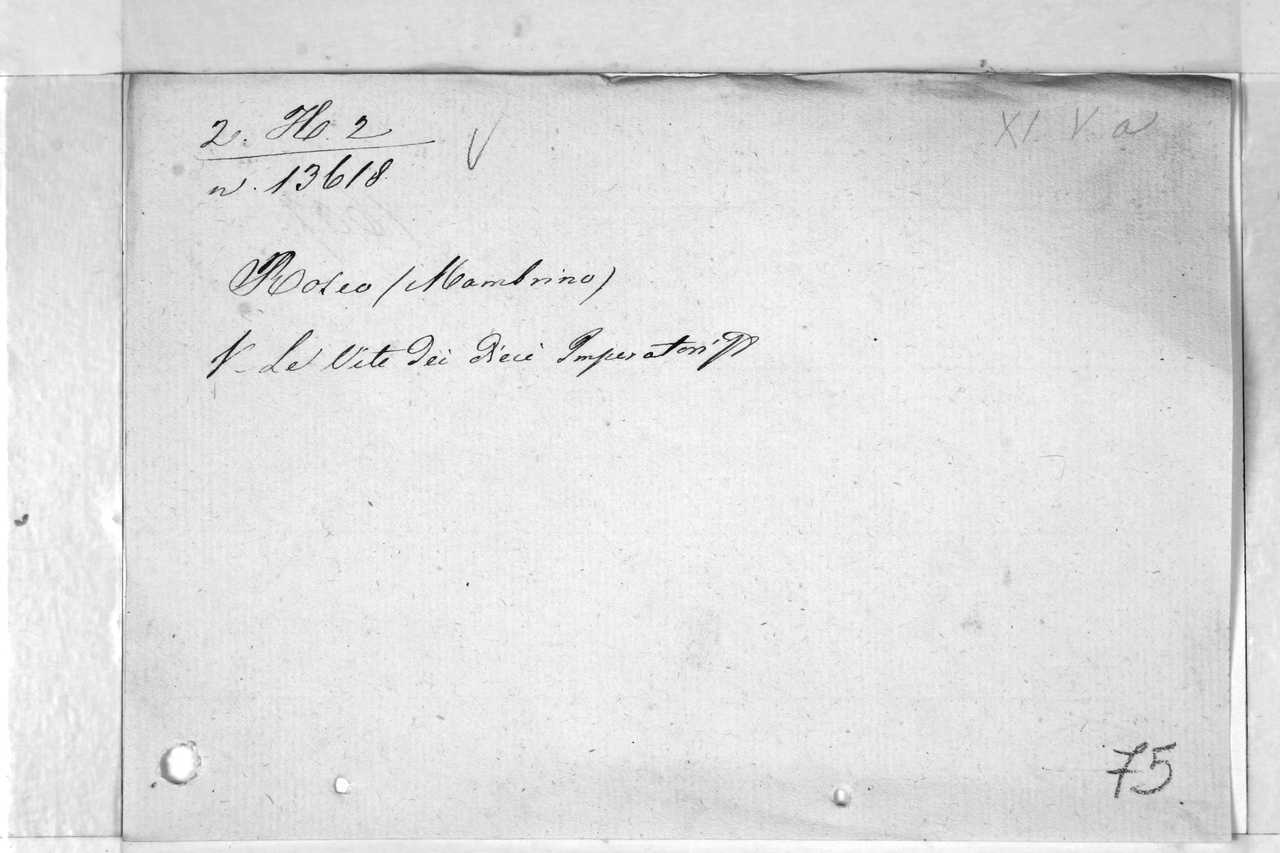 2. H. 2
XI V. a
n. 13618
Roseo (Mambrino)
V. Le Vite dei dieci Imperatori
75